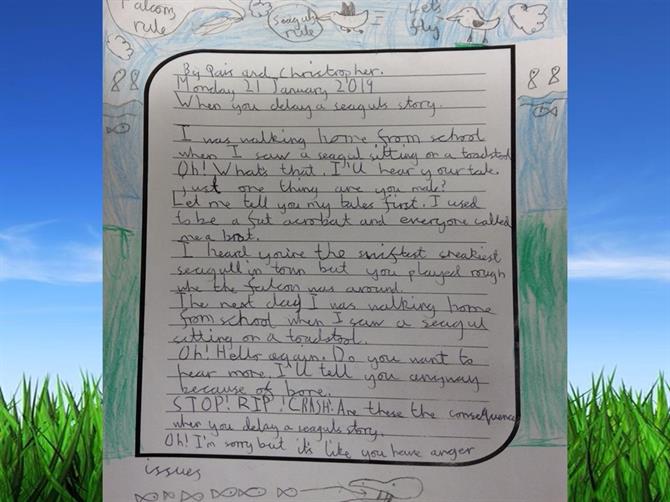 Falcons
rule
Seaguls
rule
Lets
fly
By Qais and Christropher.
Monday 21 January 2019
When you delay a seaguls story.
I was walking home from school
when I saw a seagul sitting on a toadstool
Oh! Whats that. I'll hear your tale.
just one thing are you male?
Let me tell you my tales first. I used
to be a fat acrobat and everyone called
me a brat.
I heard you're the swiftest sneakiest
seagull in town but you played rough
whe the falcon was around.
The next day I was walking home
from school when I saw a seagul
sitting on a toadstool.
Oh! Hello again. Do you want to
hear more. I'll tell you anyway
because of bore.
STOP! RIP! CRASH! Are these the consequences
when you delay a seaguls story.
Oh! I'm sorry but it's like you have anger
issues